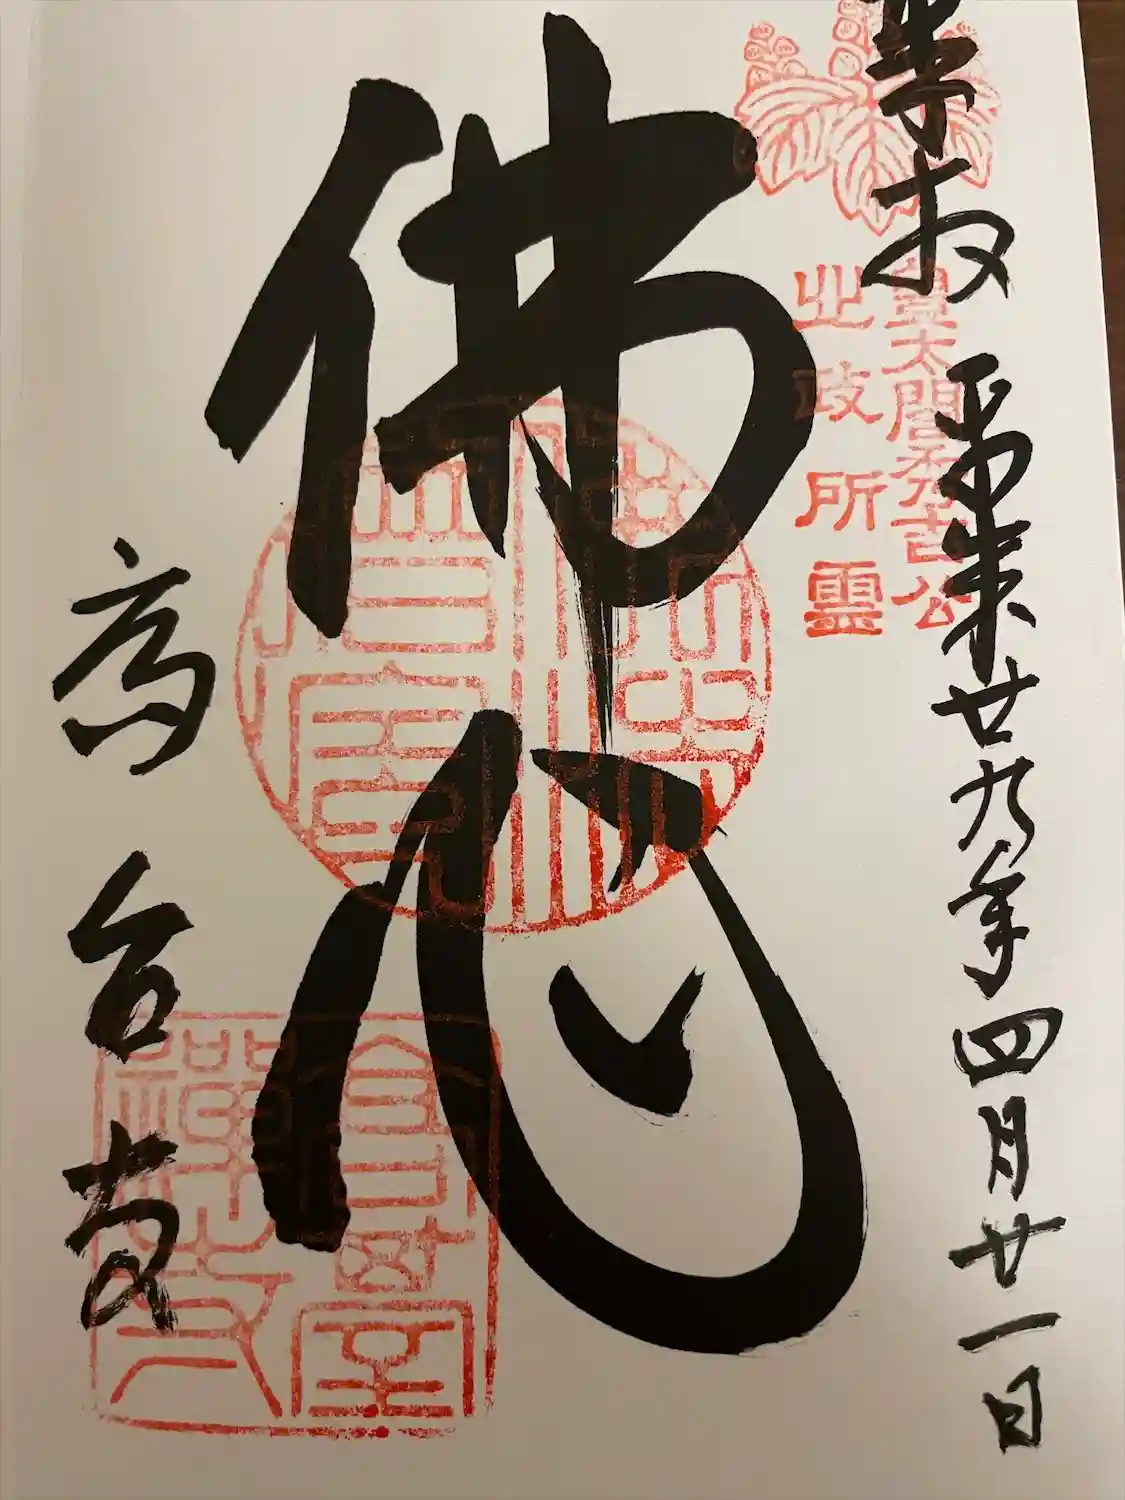 奉拝
平成廿九年四月廿一日
豊太閤秀吉公
北政所霊
佛心
高台寺